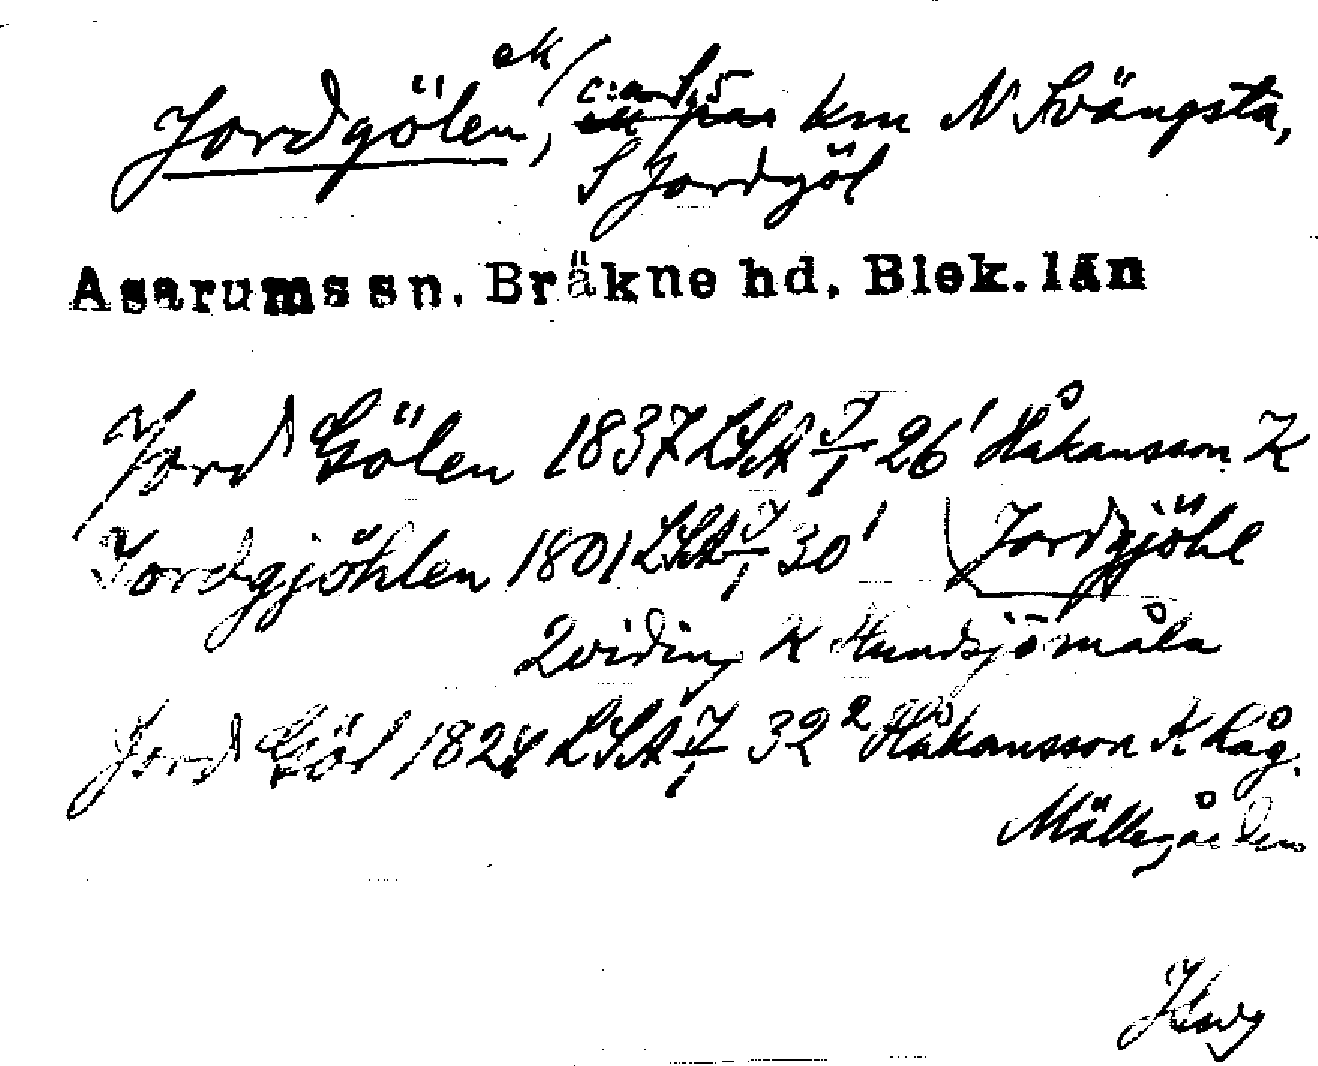 Jordgölen, ek/ c:a 1,5 km N Svängsta,
S Jordgöl
Asarums sn. Bräkne hd. Blek. län
Jord Gölen 1837 LSA J/1 26¹ Håkansson K
Jordgjöhlen 1801 LSA J/1 30¹ Jordgjöhl
Qviding K Hundsjömåla
Jord Göl 1824 LSA J/1 32² Håkansson K Råg.
Möllegården